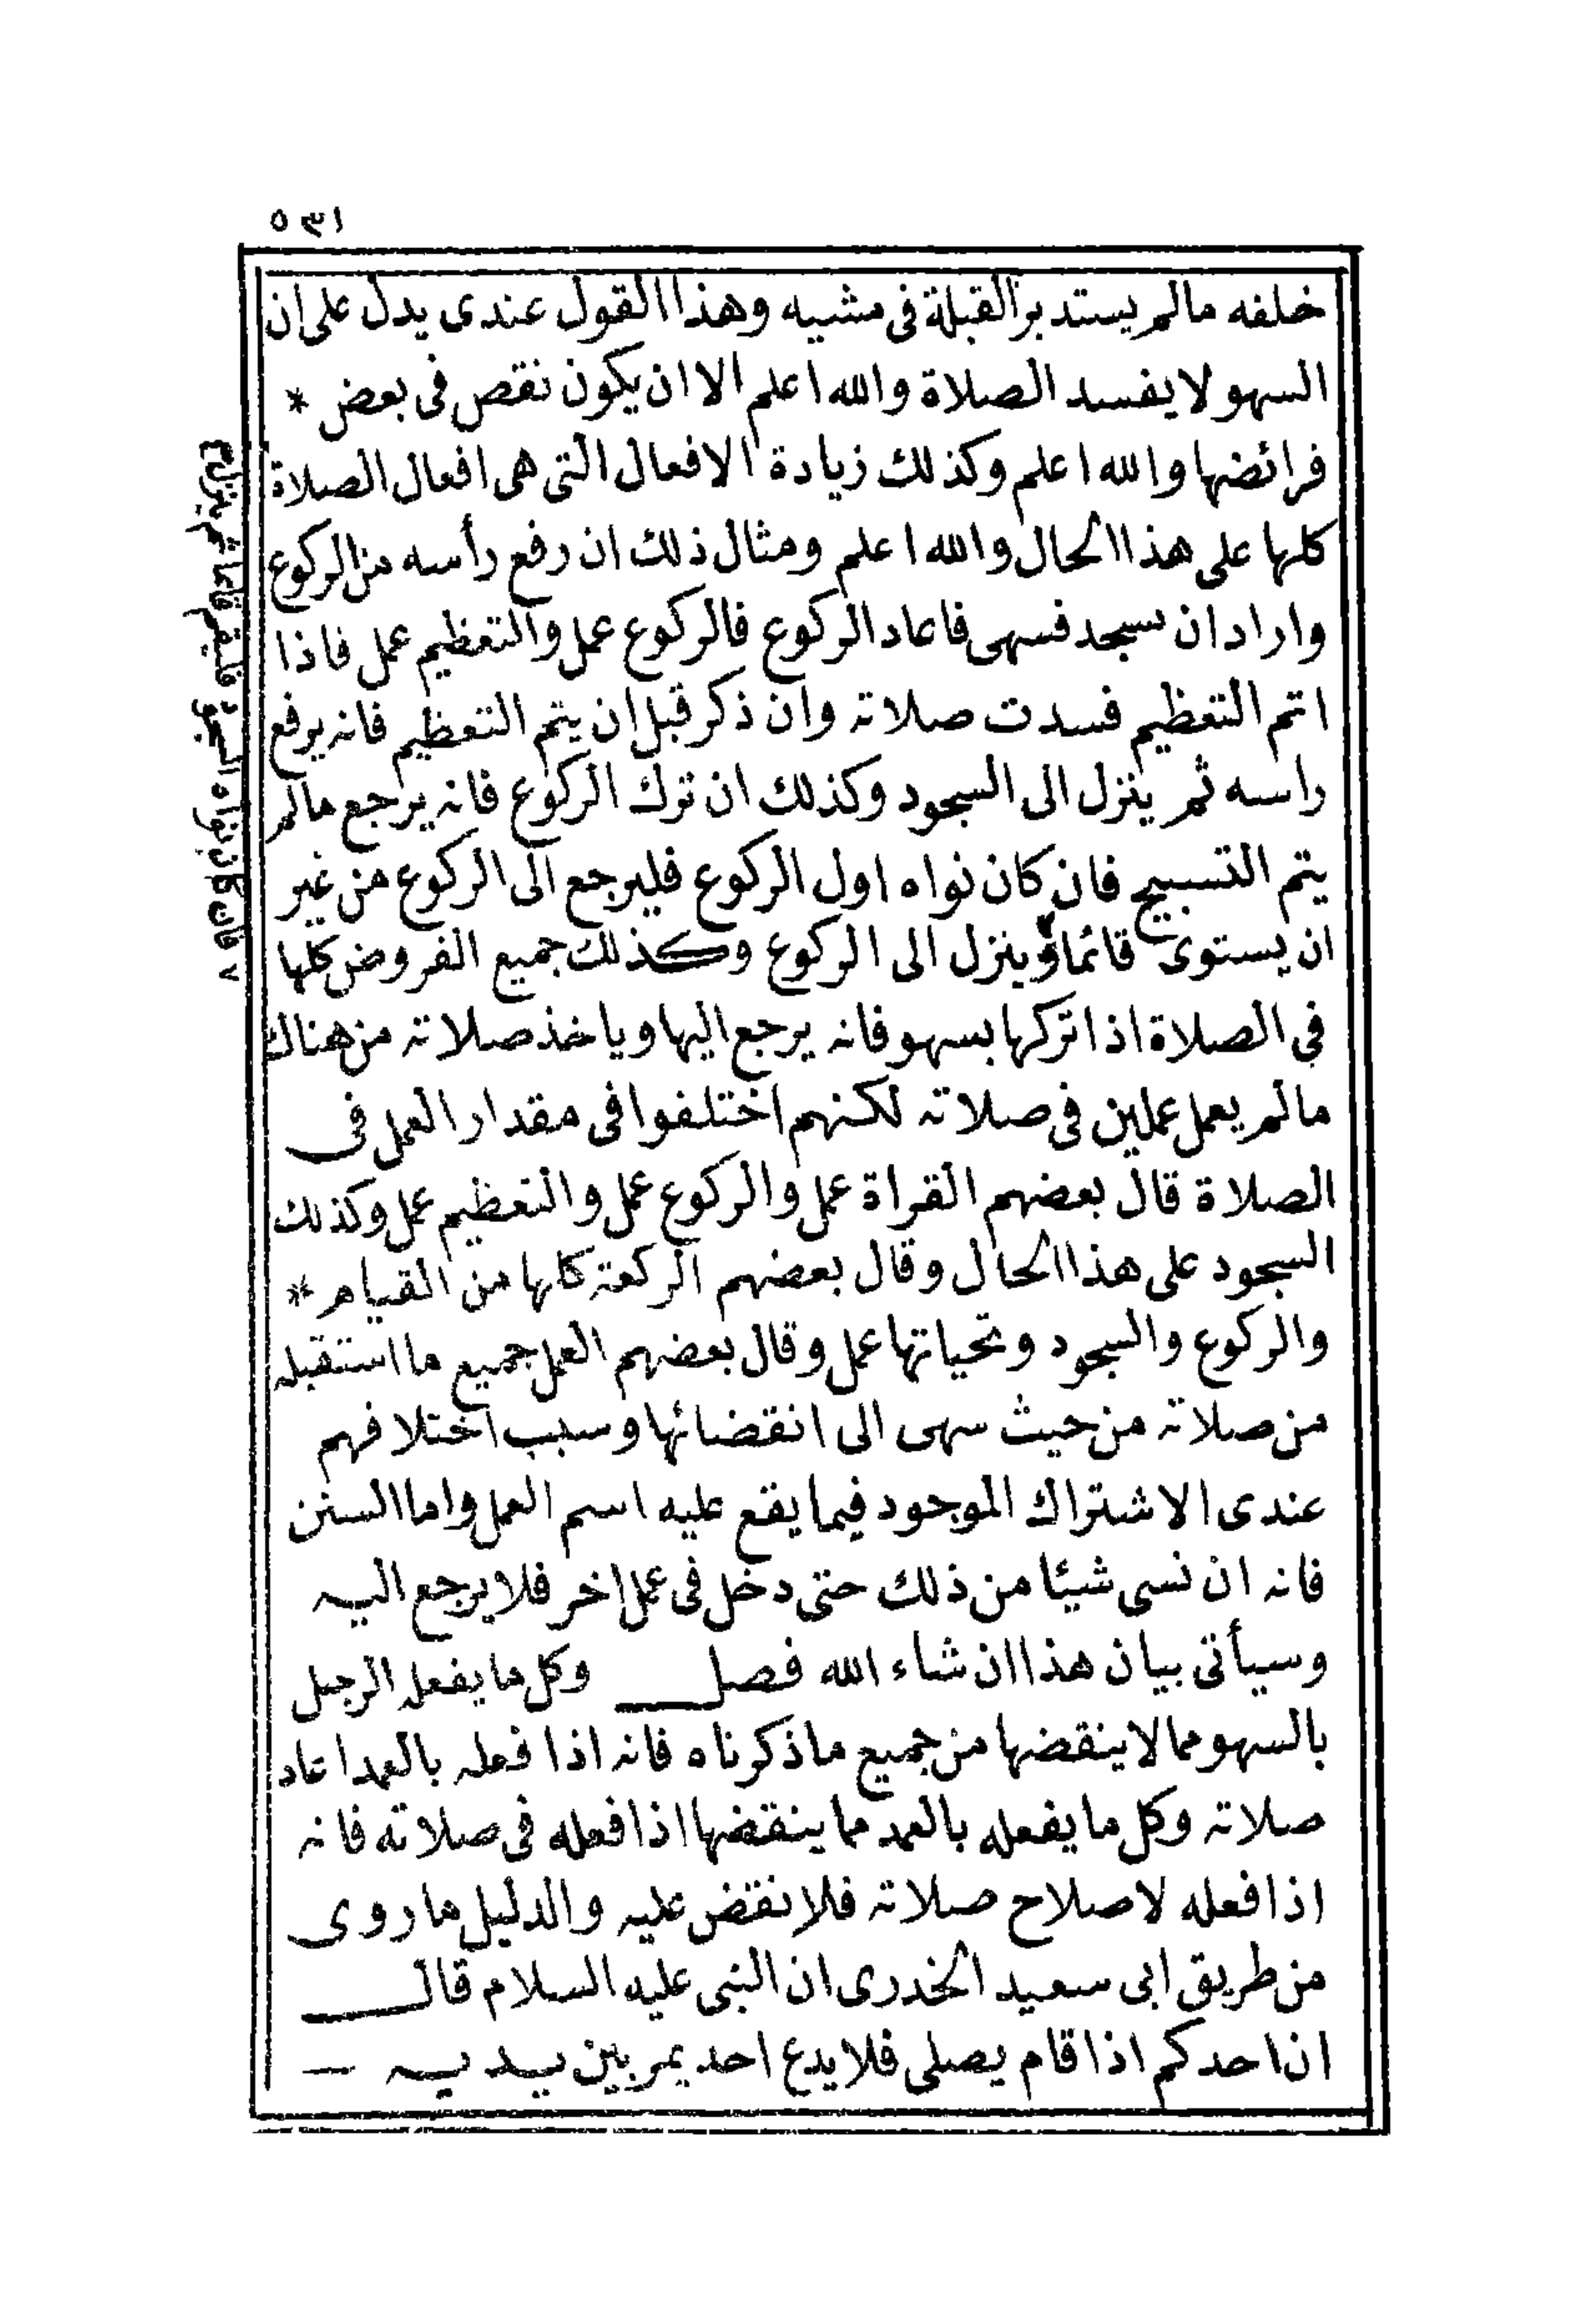 ٥٣١
خلفه مالم يستدبر القبلة فى مشيه وهذا القول عندى يدل على ان
السهو لا يفسد الصلاة والله اعلم الا ان يكون نقص فى بعض *
فرائضها والله اعلم وكذلك زيادة الافعال التى هى افعال الصلاة
كلها على هذا الحال والله اعلم ومثال ذلك ان رفع رأسه من الركوع
واراد ان يسجد فسهى فاعاد الركوع فالركوع عمل والتعظيم عمل فاذا
اتم التعظيم فسدت صلاته وان ذكر قبل ان يتم التعظيم فانه يرفع
راسه ثم ينزل الى السجود وكذلك ان ترك الركوع فانه يرجع مالم
يتم التسبيح فان كان نواه اول الركوع فليرجع الى الركوع من غير
ان يستوى قائما٧ وينزل الى الركوع وكذلك جميع الفروض كلها
فى الصلاة اذا تركها بسهو فانه يرجع اليها وياخذ صلاته من هناك
مالم يعمل عملين فى صلاته لكنهم اختلفوا فى مقدار العمل فى
الصلاة قال بعضهم القراة عمل والركوع عمل والتعظيم عمل وكذلك
السجود على هذا الحال وقال بعضهم الركعة كلها من القيام *
والركوع والسجود وتحياتها عمل وقال بعضهم العمل جميع ما استقبله
من صلاته من حيث سهى الى انقضائها وسبب اختلافهم
عندى الاشتراك الموجود فيما يقع عليه اسم العمل واما السنن
فانه ان نسى شيئا من ذلك حتى دخل فى عمل اخر فلا يرجع اليه
وسيأتى بيان هذا ان شاء الله فصل وكل ما يفعله الرجل
بالسهو مما لا ينقضها من جميع ما ذكرناه فانه اذا فعله بالعمد اعاد
صلاته وكل ما يفعله بالعمد مما ينقضها اذا فعله فى صلاته فانه
اذا فعله لاصلاح صلاته فلا نقض عليه والدليل ما روى
من طريق ابى سعيد الخدرى ان النبى عليه السلام قال
ان احدكم اذا قام يصلى فلا يدع احد يمر بين يديه
٧ فان كان نواه السجود فليقم قائما ثم ينزل